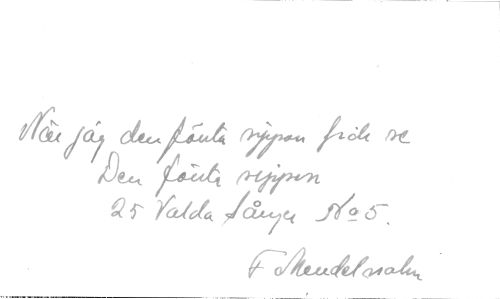 När jag den första sippan fick se
Den första sippan
25 Valda Sånger No 5.
F Mendelssohn